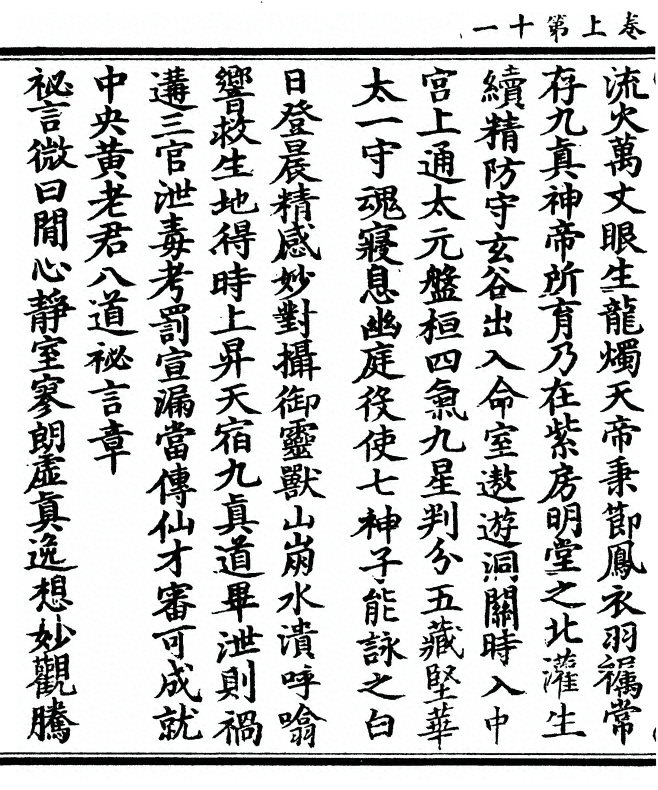 卷上第十一
流火萬丈眼生龍燭天帝秉節鳳衣羽襡常
存九真神帝所育乃在紫房明堂之北灌生
續精防守玄谷出入命室遨遊洞關時入中
宮上通太元盤桓四氣九星判分五藏堅華
太一守魂寢息幽庭役使七神子能詠之白
日登晨精感妙對攝御靈獸山崩水潰呼噏
響救生地得時上昇天宿九真道畢泄則禍
遘三官泄毒考罰宣漏當傳仙才審可成就
中央黃老君八道祕言章
祕言微曰閒心靜室寥朗虛真逸想妙觀騰